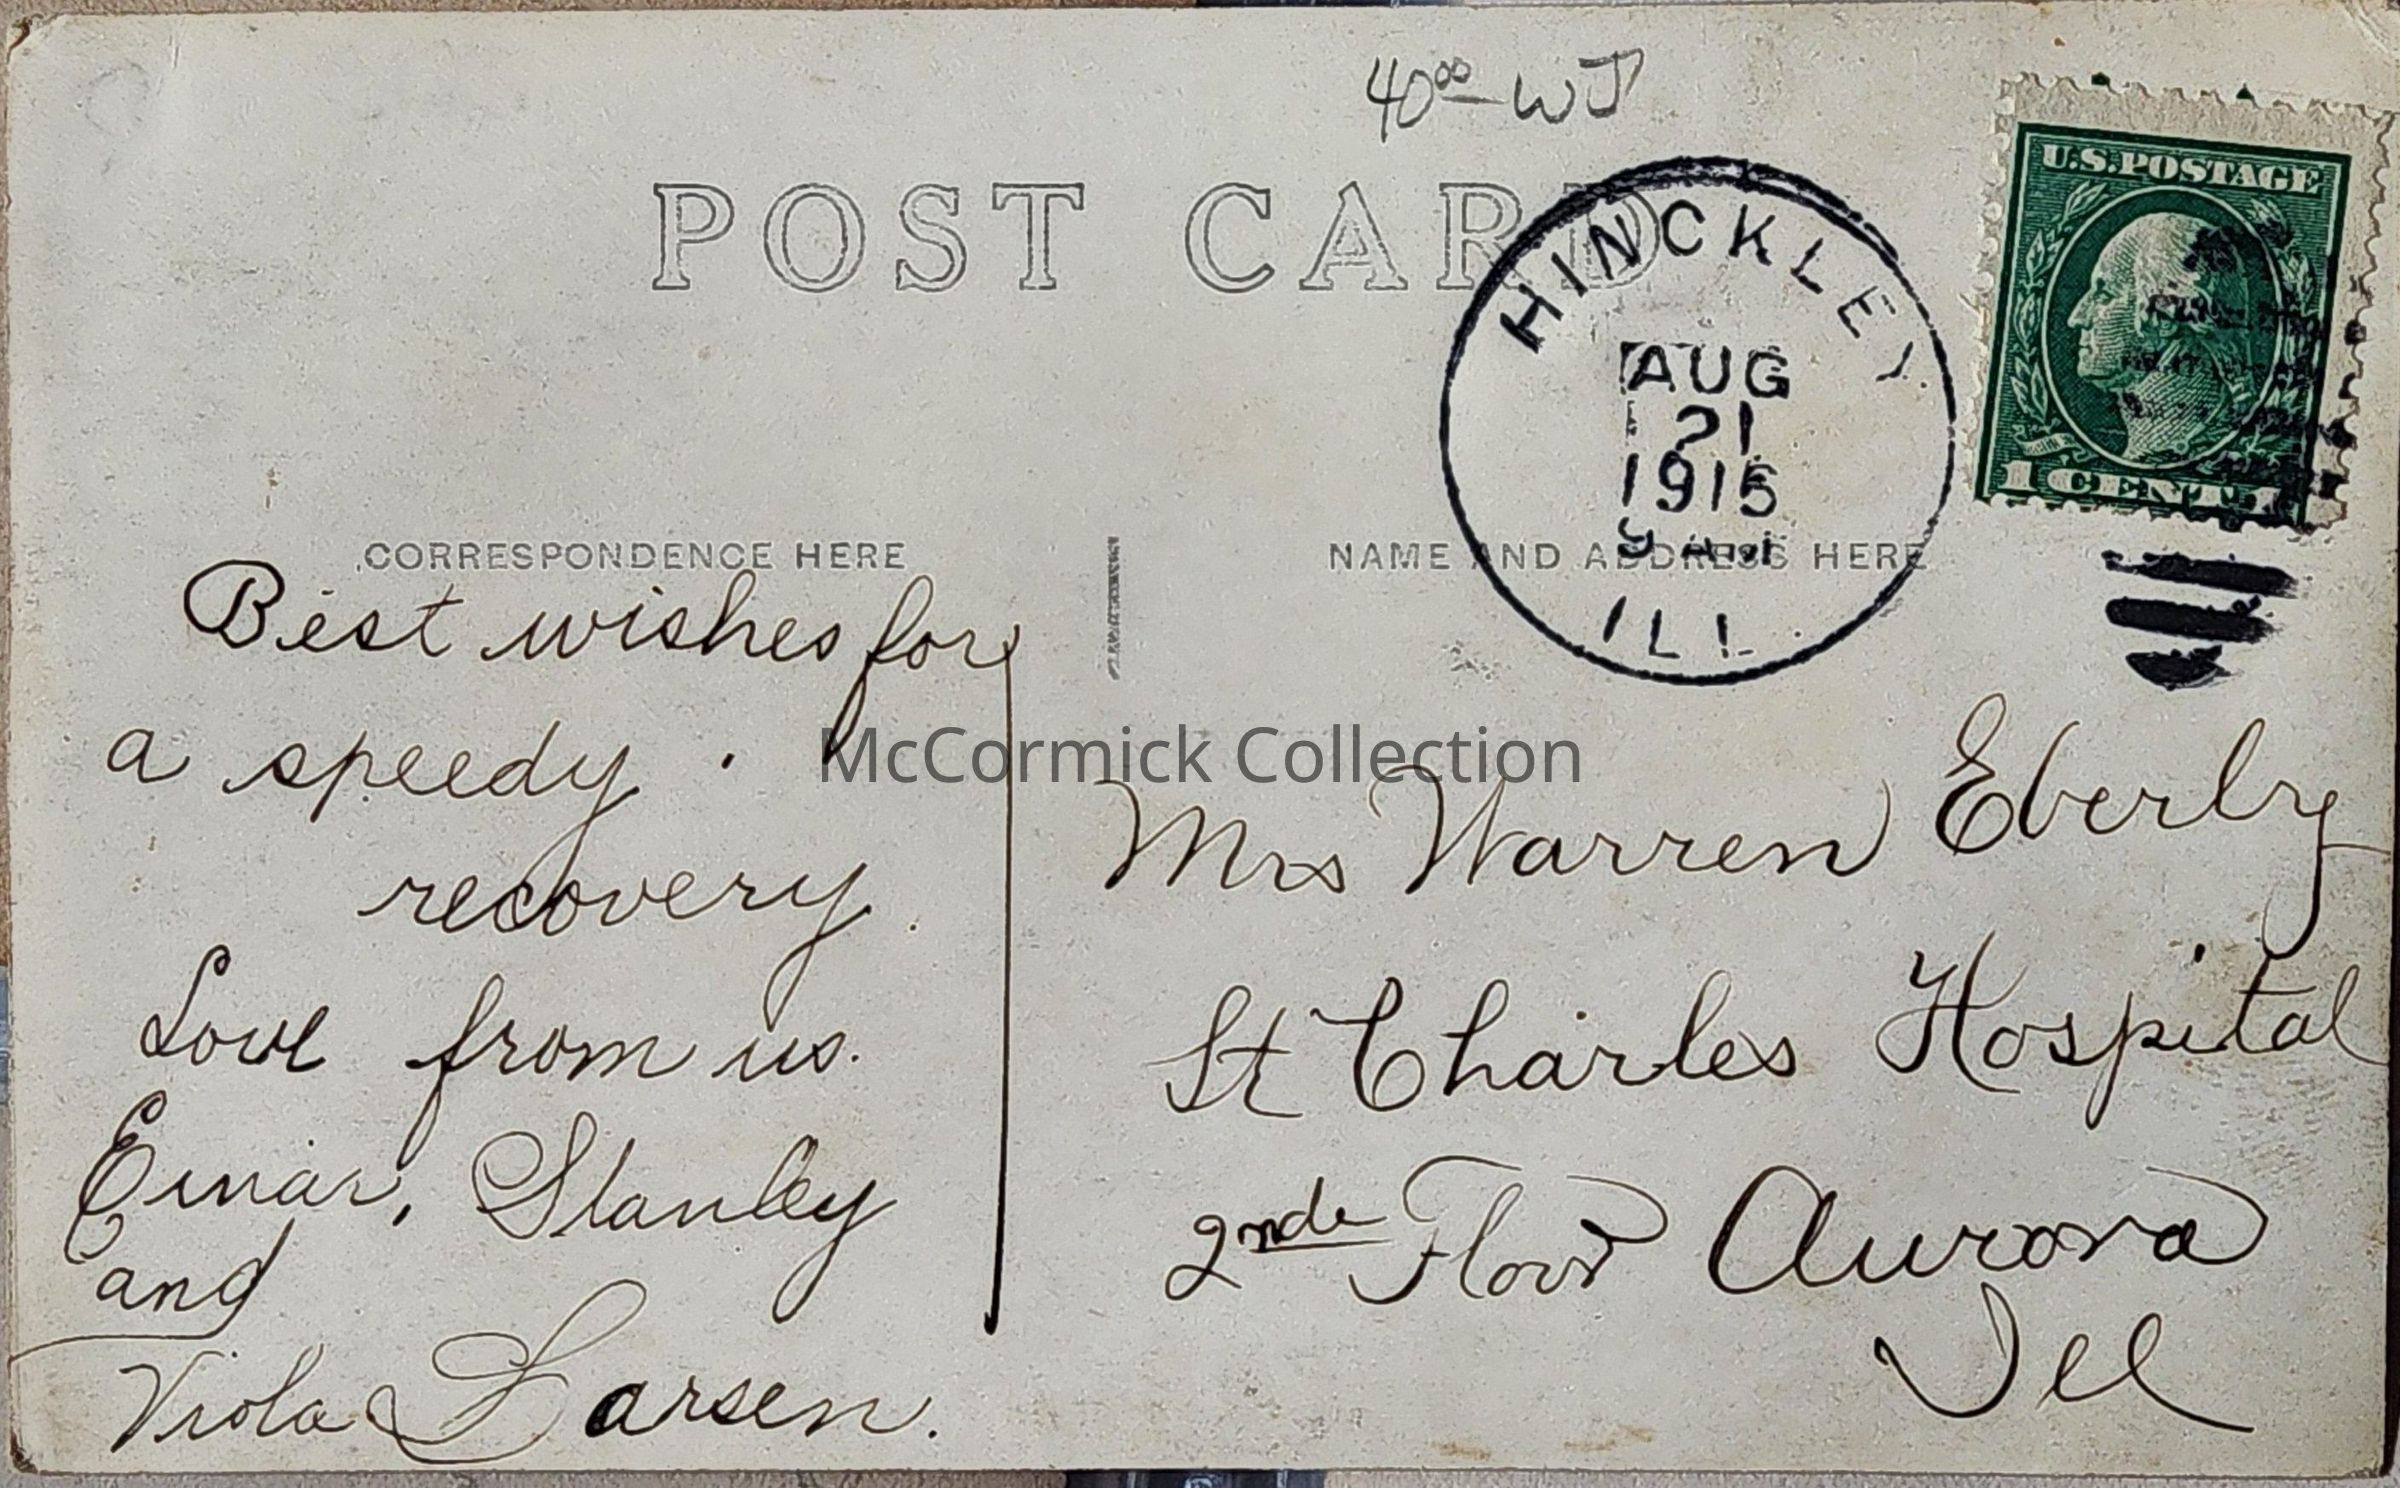 40⁰⁰ WJ
POST CARD
U.S. POSTAGE
1 CENT 1
HINCKLEY
AUG
21
1915
9 AM
ILL.
CORRESPONDENCE HERE
NAME AND ADDRESS HERE
Best wishes for
a speedy
recovery.
Love from us.
Einar, Stanley
and
Viola Larsen.
Mrs Warren Eberly
St Charles Hospital
2nd Floor Aurora
Ill
McCormick Collection